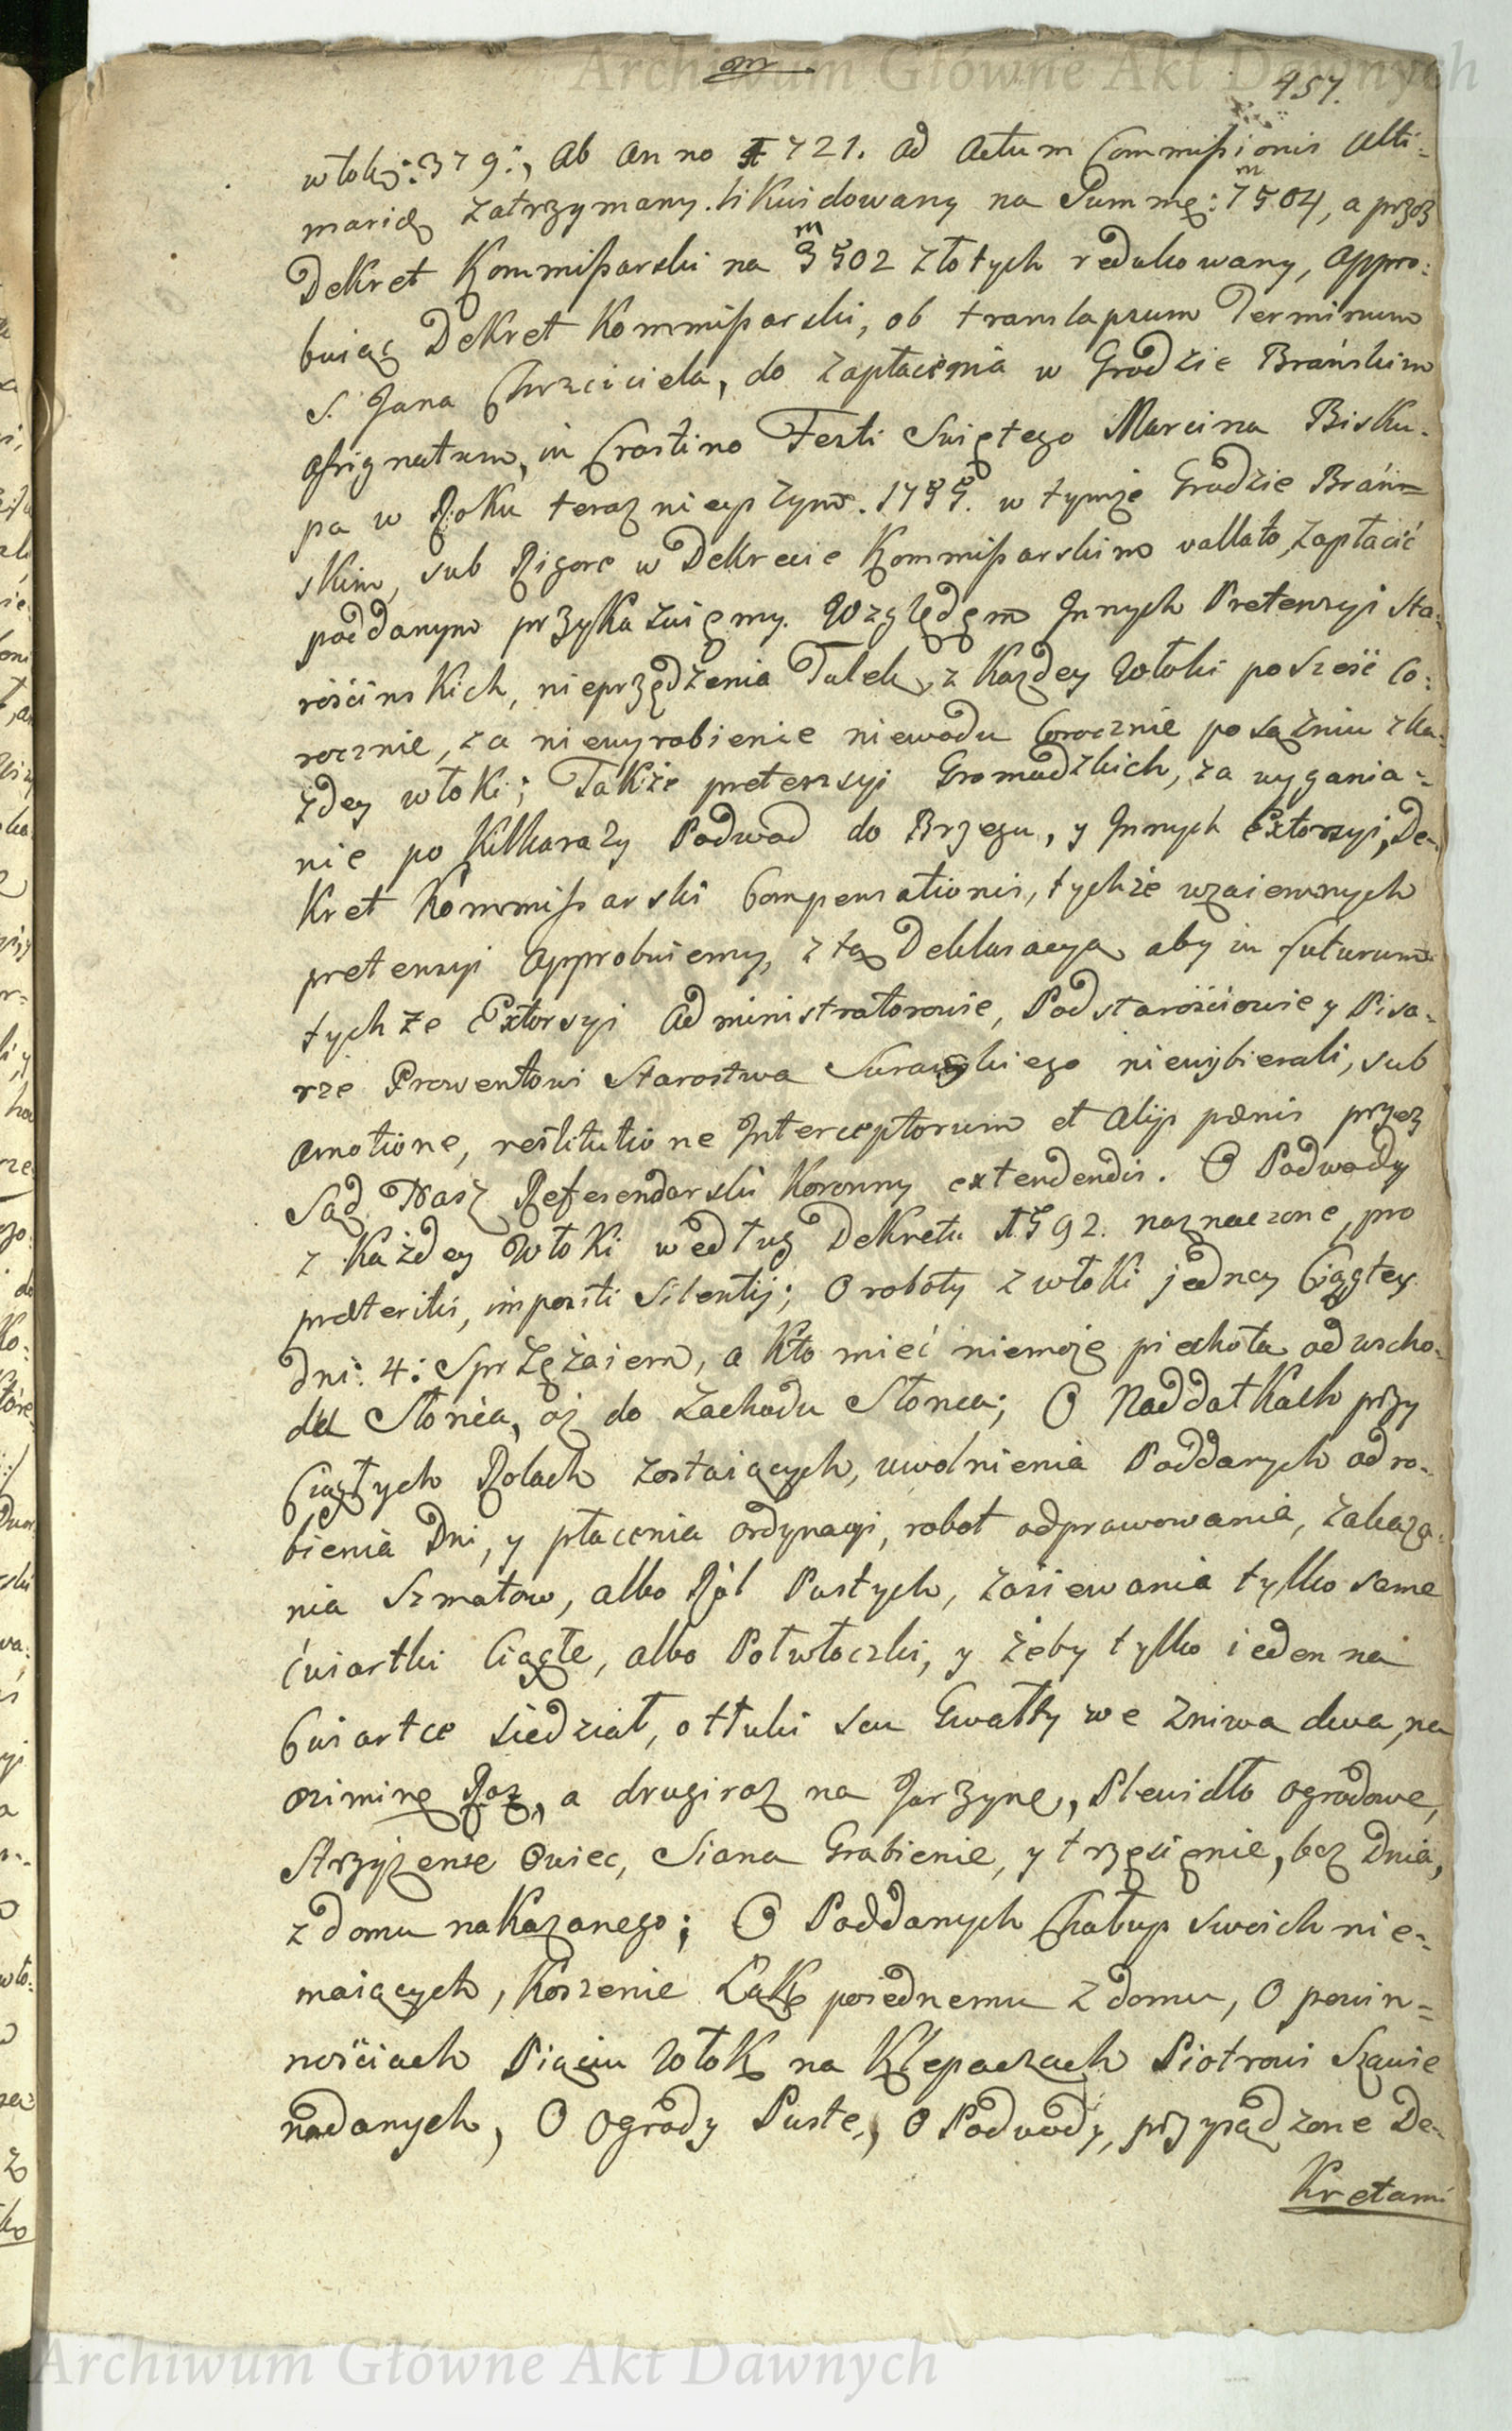 Archiwum Główne Akt Dawnych
457.
włoky: 379:, ab anno 1721. ad actum Commissionis Ulti-
marię zatrzymany likwidowany na Summę: 7 m 504, a przez
Dekret Kommissarski na 3 m 502 złotych redukowany, appro-
buiąc Dekret Kommissarski, ob translapsum Terminum
S. Jana Chrzciciela, do zapłacenia w Grodzie Brańskim
assignatum, in Crastino Festi Swiętego Marcina Bisku-
pa w Roku teraznieyszym. 1755. w tymże Grodzie Brań-
skim, sub Rigore w Dekrecie Kommissarskim vallato, zapłacić
poddanym przykazuiemy. Względem Innych Pretensyi Sta-
rościnskich, nieprzędzenia Talek, z każdey Włoki po sześć co-
rocznie, za niewyrobienie niewodu corocznie po sążniu z ka-
żdey włoki; Także pretensyi Gromadzkich, za wygania-
nie po kilkarazy Podwod do Brzegu, y Innych Extorsyi, De-
kret Kommissarski Compensationis, tychże wzaiemnych
pretensyi approbuiemy, z tą Deklaracyą aby in futurum
tychże Extorsyi Administratorowie, Podstarościowie y Pisa-
rze Prowentowi Starostwa Suraskiego niewybierali, sub
amotione, restitutione Interceptorum et alijs pænis przez
Sąd Nasz Referendarski Koronny extendendis. O Podwody
z Każdey Włoki według Dekretu 1592. naznaczone, pro
præteritis, impositi Silentij; O roboty z włoki jedney Ciągłey
dni: 4: Sprzężaiem, a kto mieć niemoże piechotą od wscho-
du Słońca, aż do zachodu Słonca; O Naddatkach przy
Ciągłych Rolach zostaiących, uwolnienia Poddanych od ro-
bienia Dni, y płacenia ordynacyi, robot odprawowania, zakaza-
nia Szmatow, albo Ról Pustych, zasiewania tylko same
ćwiartki Ciągłe, albo Połwłoczki, y żeby tylko ieden na
Cwiartce siedział, o tłuki seu Gwałty we żniwa dwa, na
oziminę Raz, a drugi raz na Jarzynę, Plewidło ogrodowe,
Strzyżenie Owiec, Siana Grabienie, y trzęsienie, bez Dnia,
z domu nakazanego; O Poddanych Chałup swoich nie-
maiących, koszenie Łąk poiednemu z domu, O powin-
nościach Piąciu Włok na Klepaczach Piotrowi Szawie
nadanych, O Ogrody Puste, O Podwody, przysądzone De-
Kretami
Archiwum Główne Akt Dawnych